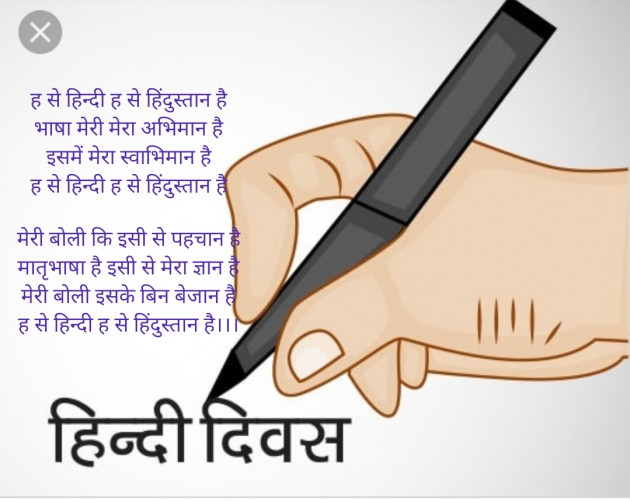 ह से हिन्दी ह से हिंदुस्तान है
भाषा मेरी मेरा अभिमान है
इसमें मेरा स्वाभिमान है
ह से हिन्दी ह से हिंदुस्तान है
मेरी बोली कि इसी से पहचान है
मातृभाषा है इसी से मेरा ज्ञान है
मेरी बोली इसके बिन बेजान है
ह से हिन्दी ह से हिंदुस्तान है।।।
हिन्दी दिवस